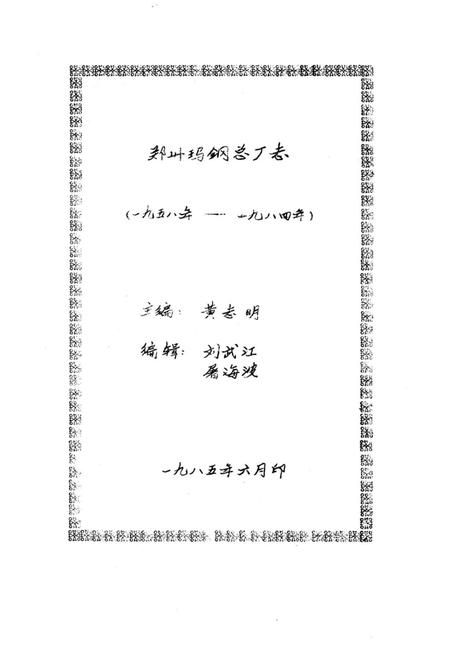 郑州玛钢总厂志
(一九五八年 一 一九八四年)
主编: 黄志明
编辑: 刘武江
屠海波
一九八五年六月印